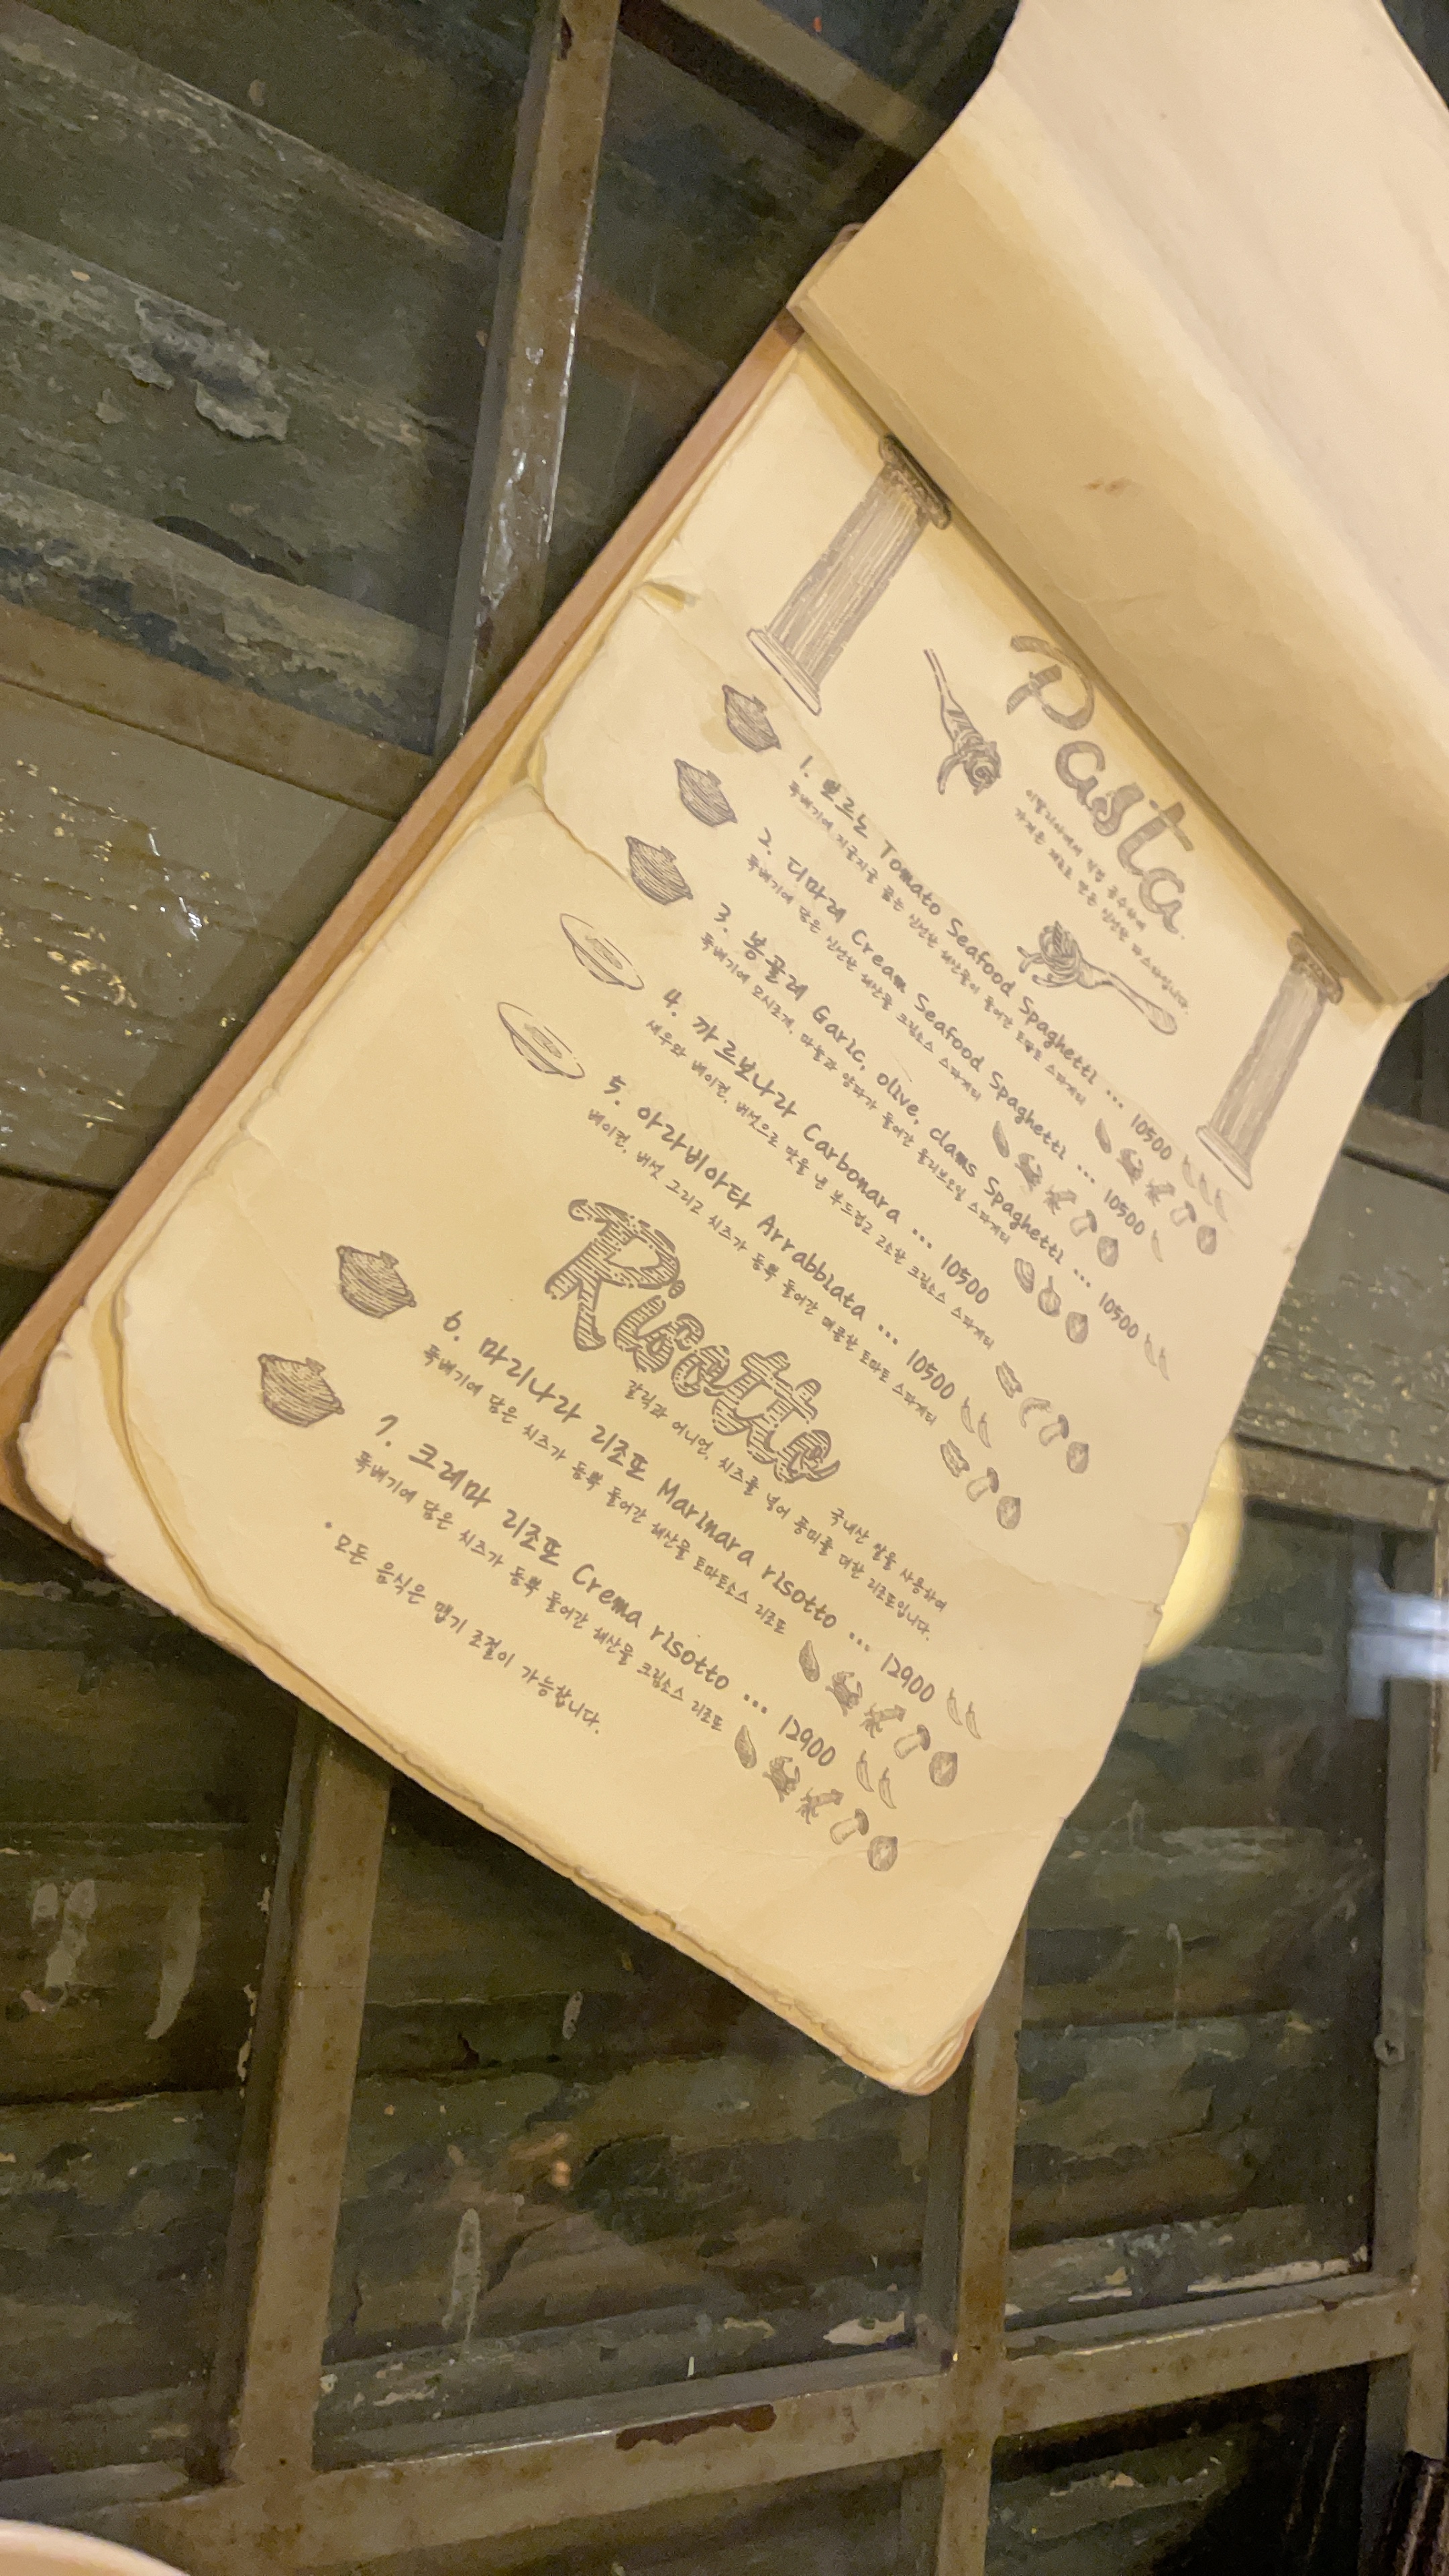 Pasta
이탈리아에서 직접 공수하여
가져온 재료로 만든 신선한 파스타입니다.
1. 뽀르노 Tomato Seafood Spaghetti ... 10500
뚝배기에 지글지글 끓는 신선한 해산물이 들어간 토마토 스파게티
2. 디마레 Cream Seafood Spaghetti ... 10500
뚝배기에 담은 신선한 해산물 크림소스 스파게티
3. 봉골레 Garlic, olive, clams Spaghetti ... 10500
뚝배기에 모시조개, 마늘과 양파가 들어간 올리브오일 스파게티
4. 까르보나라 Carbonara ... 10500
새우와 베이컨, 버섯으로 맛을 낸 부드럽고 고소한 크림소스 스파게티
5. 아라비아타 Arrabbiata ... 10500
베이컨, 버섯 그리고 치즈가 듬뿍 들어간 매콤한 토마토 스파게티
Risotto
국내산 쌀을 사용하여
갈릭과 어니언, 치즈를 넣어 풍미를 더한 리조또입니다.
6. 마리나라 리조또 Marinara risotto ... 12900
뚝배기에 담은 치즈가 듬뿍 들어간 해산물 토마토소스 리조또
7. 크레마 리조또 Crema risotto ... 12900
뚝배기에 담은 치즈가 듬뿍 들어간 해산물 크림소스 리조또
• 모든 음식은 맵기 조절이 가능합니다.